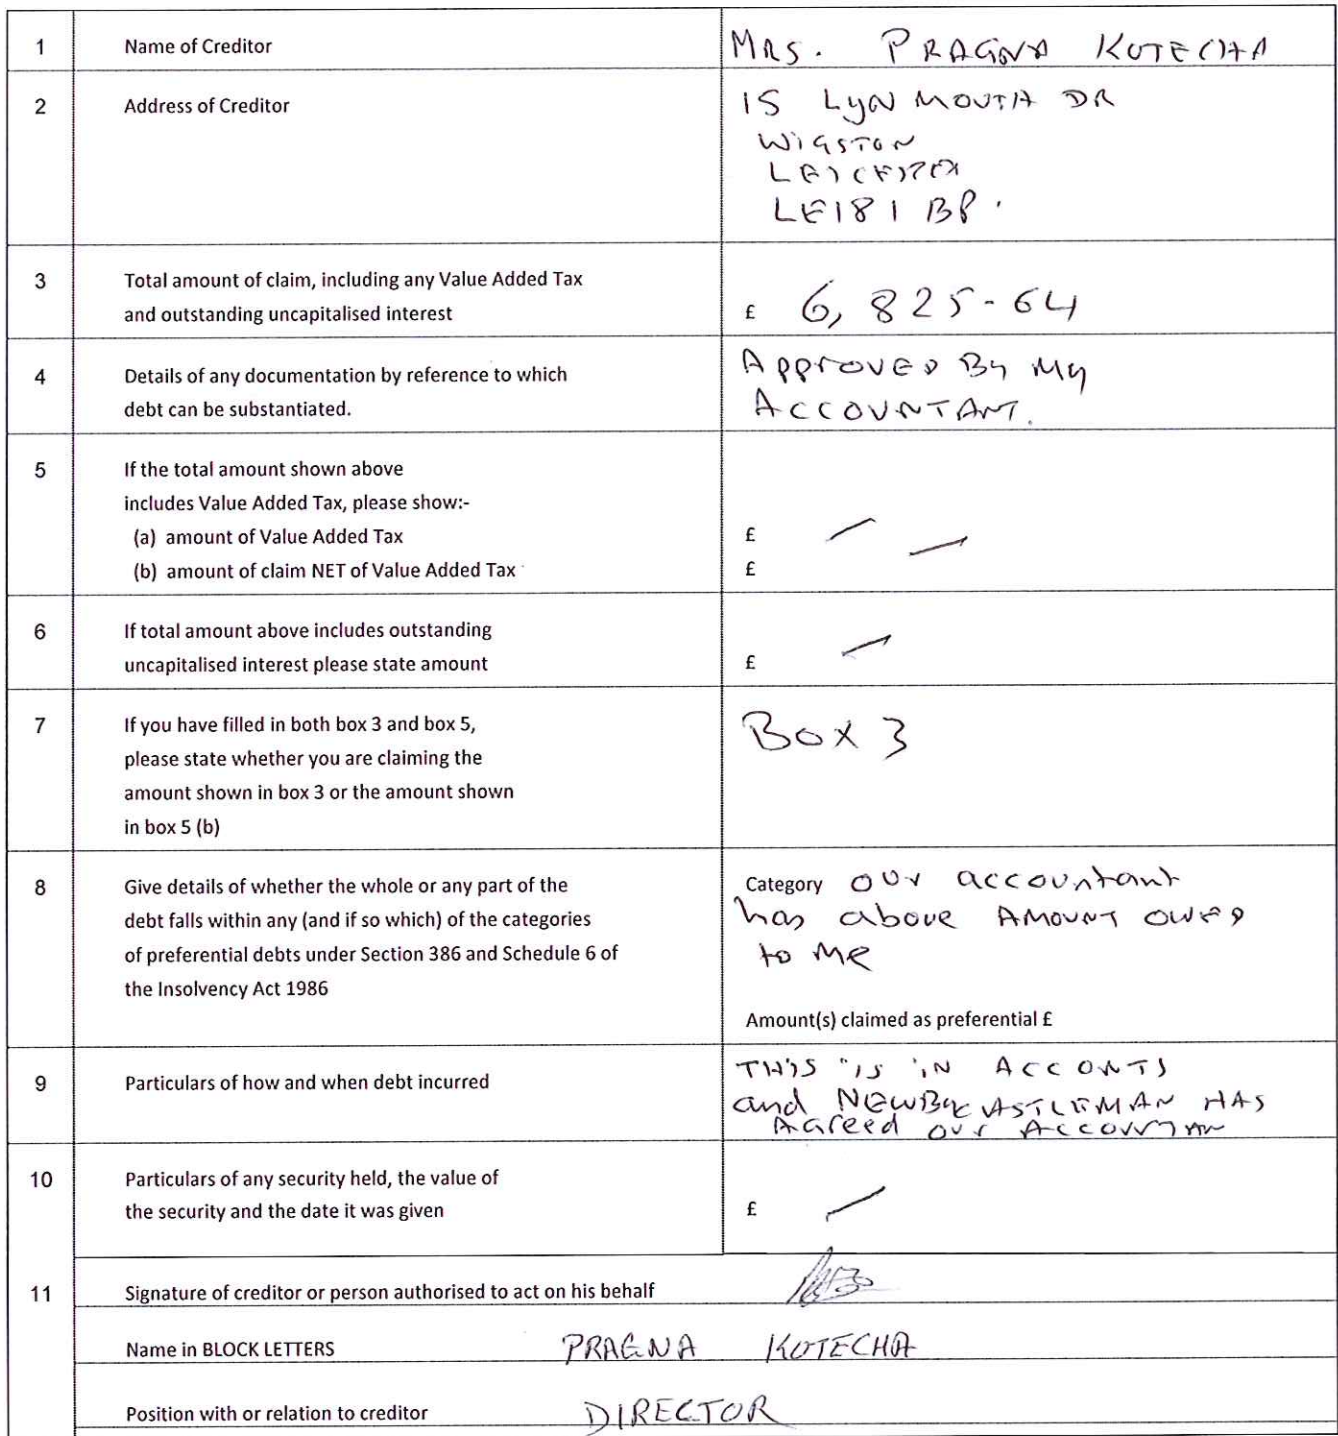 1 Name of Creditor MRS. PRAGNA KOTECHA
2 Address of Creditor 15 LYNMOUTH DR
WIGSTON
LEICESTER
LE18 1 BP.
3 Total amount of claim, including any Value Added Tax
and outstanding uncapitalised interest £ 6,825-64
4 Details of any documentation by reference to which APPrOVED By My
debt can be substantiated. ACCOUNTANT.
5 If the total amount shown above
includes Value Added Tax, please show:-
(a) amount of Value Added Tax £ —
(b) amount of claim NET of Value Added Tax £ —
6 If total amount above includes outstanding
uncapitalised interest please state amount £ —
7 If you have filled in both box 3 and box 5, Box 3
please state whether you are claiming the
amount shown in box 3 or the amount shown
in box 5 (b)
8 Give details of whether the whole or any part of the Category our accountant
debt falls within any (and if so which) of the categories has above AMOUNT OWED
of preferential debts under Section 386 and Schedule 6 of to Me
the Insolvency Act 1986
Amount(s) claimed as preferential £
9 Particulars of how and when debt incurred THIS is iN ACCONTS
and NEWBY CASTLEMAN HAS
AGreed our ACCOUNTAN
10 Particulars of any security held, the value of
the security and the date it was given £ —
11 Signature of creditor or person authorised to act on his behalf
Name in BLOCK LETTERS PRAGNA KOTECHA
Position with or relation to creditor DIRECTOR